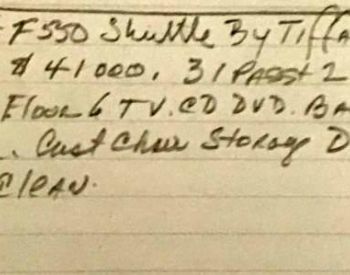 F550 Shuttle By Tiffa
$41000. 31 PASS + 2
Floor 6 TV. CD DVD. BA
. Cust Chair Storage D
Clean.